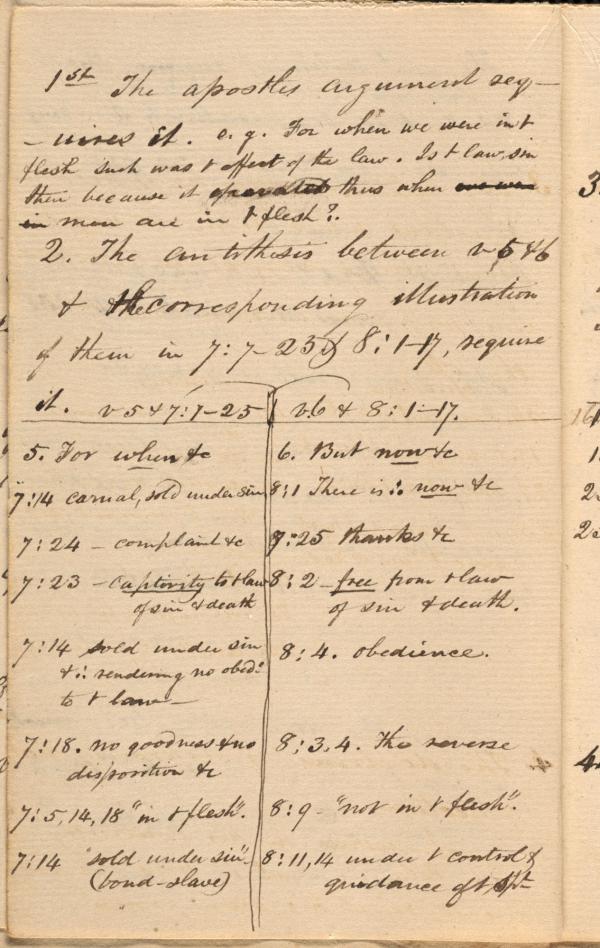 1st The apostles argument req-
-uires it. e.g. For when we were in t
flesh such was t effect of the law. Is t law, sin
then because it operated thus when we were
in men are in t flesh?.
2. The antithesis between v 5 & 6
& the corresponding illustration
of them in 7:7-25 & 8:1-17, require
it. v 5 & 7:7-25 | v.6 & 8:1-17.
5. For when &c
6. But now &c
7:14 carnal, sold under sin
8:1 There is ∴ now &c
7:24 - complaint &c
7:25 thanks &c
7:23 - captivity to t law
of sin & death
8:2 - free from t law
of sin & death.
7:14 sold under sin
& ∴ rendering no obed:
to t law -
8:4. obedience.
7:18. no goodness & no
disposition &c
8:3,4. The reverse
7:5,14,18 "in t flesh".
8:9 - "not in t flesh".
7:14 "sold under sin"-
(bond-slave)
8:11,14 under t control &
guidance of t Spt